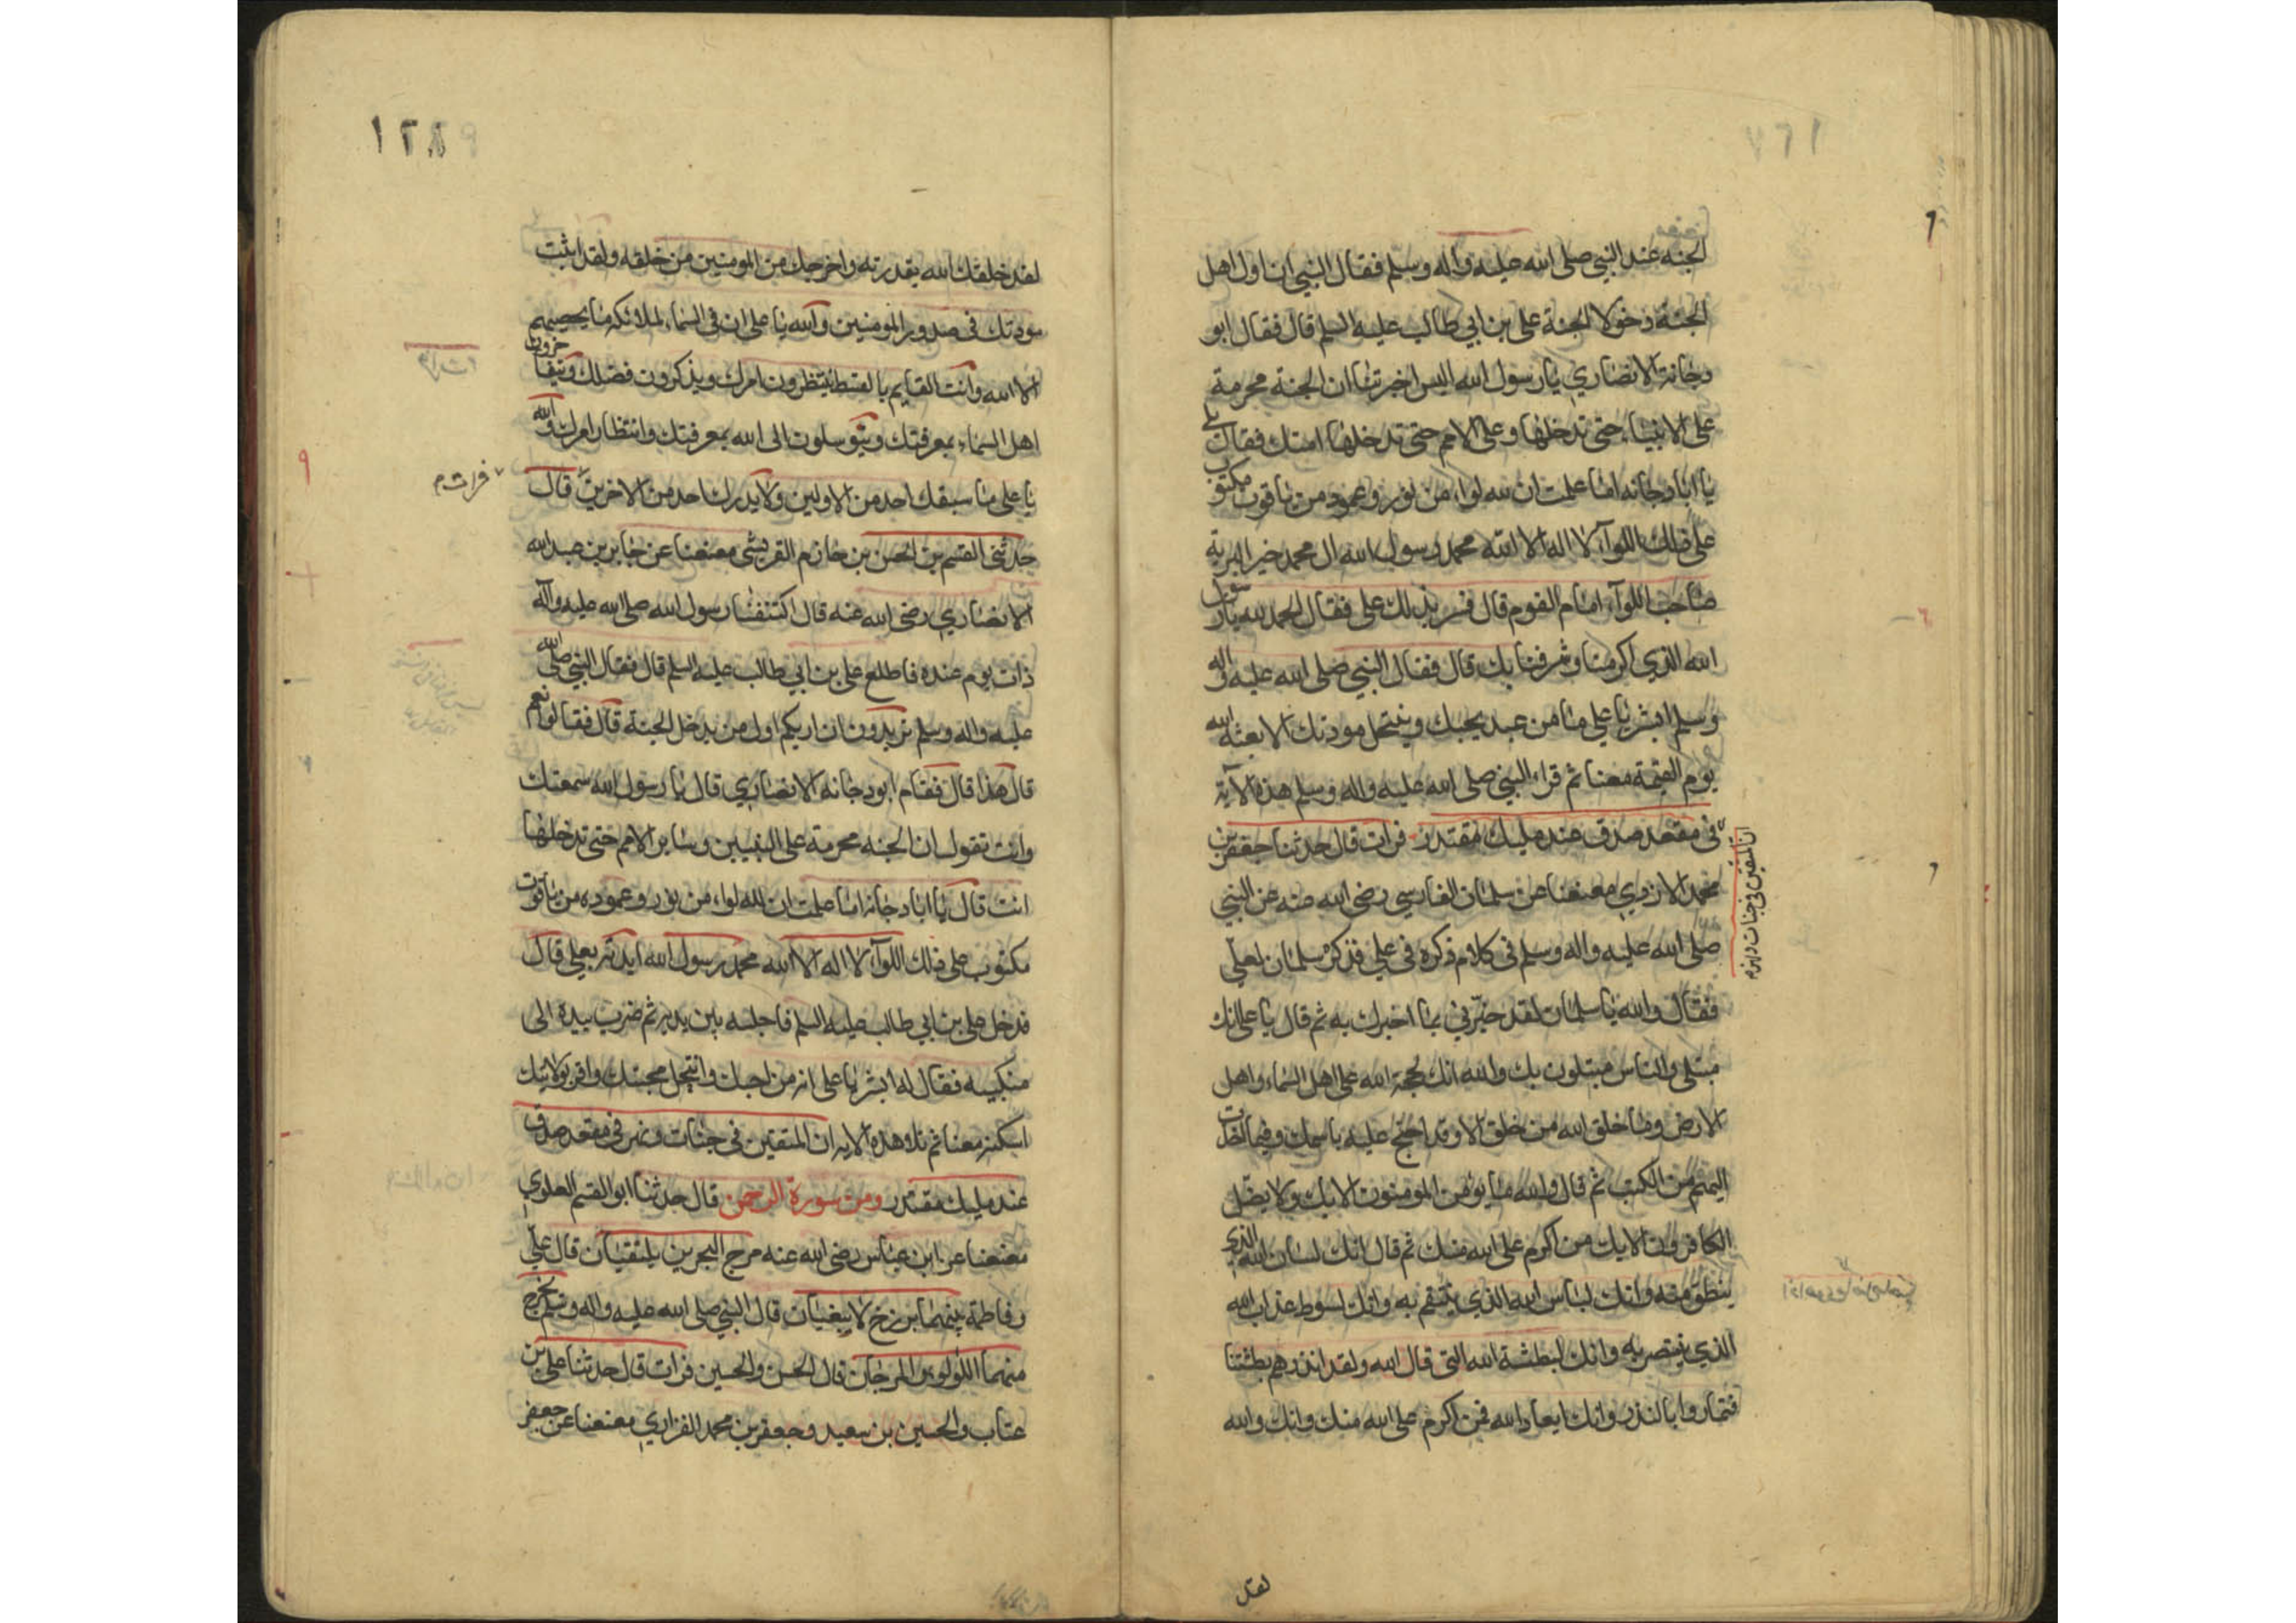 الجنه عند النبي صلى الله عليه واله وسلم فقال النبي ان اول اهل
الجنة دخولا الجنة على بن ابي طالب عليه السلم قال فقال ابو
دجانة الانصاري يا رسول الله اليس اخبرتنا ان الجنة محرمة
على الانبياء حتى تدخلها وعلى الامم حتى تدخلها امتك فقال بلى
يا ابا دجانه اما علمت ان لله لواء من نور وعمود من ياقوت مكتوب
على ذلك اللوآء لا اله الا الله محمد رسول الله ال محمد خير البرية
صاحب اللوآء امام القوم قال فسر بذلك على فقال الحمد لله يا رسول
الله الذي اكرمنا وشرفنا بك قال فقال النبي صلى الله عليه واله
وسلم ابشر يا علي ما من عبد يحبك وينتحل مودتك الا بعثه الله
يوم القيمة معنا ثم قراء النبي صلى الله عليه واله وسلم هذه الآية
ان المتقين في جنات ونهر م
في مقعد صدق عند مليك مقتدر فرات قال حدثنا جعفر بن
محمد الازدي معنعنا عن سلمان الفارسي رضى الله عنه عن النبي
صلى الله عليه واله وسلم في كلام ذكره في علي فذكر سلمان لعلي
فقال والله يا سلمان لقد خبرني بما اخبرك به ثم قال يا على انك
مبتلى والناس مبتلون بك والله انك حجة الله على اهل السماء واهل
الارض وما خلق الله من خلق الا وقد احتج عليه باسمك وفيما اخذت
اليهم من الكتب ثم قال والله ما يؤمن المومنون الا بك ولا يضل
الكافرون الا بك من اكرم على الله منك ثم قال انك لسان الله الذي
ينطق منه وانك لباس الله الذي ينتقم به وانك لسوط عذاب الله
الذي ينتصر به وانك لبطشة الله التى قال الله ولقد انذرهم بطشتنا
فتماروا بالنذر وانك ايعاد الله فمن اكرم على الله منك وانك والله
لقد
١٢٨
لقد خلقك الله بقدرته واخرجك من المومنين من خلقه ولقد اثبت
مودتك في صدور المومنين والله يا على ان في السماء لملائكة ما يحصيهم
الا الله وانت القايم بالقسط ينتظرون امرك ويذكرون فضلك ويتفاخرون
اهل السماء بمعرفتك ويتوسلون الى الله بمعرفتك وانتظار امرك والله
يا على ما سبقك احد من الاولين ولا يدرك احد من الاخرين قال
فرات م
حدثنى القسم بن الحسن بن حازم القريشى معنعنا عن جابر بن عبد الله
الانصاري رضى الله عنه قال اكتنفنا رسول الله صلى الله عليه وآله
ذات يوم عنده فاطلع على بن ابي طالب عليه السلم قال فقال النبي صلى الله
عليه واله وسلم تريدون ان اريكم اول من يدخل الجنة قال فقالوا نعم
قال هذا قال فقام ابو دجانه الانصاري قال يا رسول الله سمعتك
وانت تقول ان الجنه محرمة على النبيين وساير الامم حتى تدخلها
انت قال يا ابا دجانه اما علمت ان لله لواء من نور وعموده من ياقوت
مكتوب على ذلك اللوآء لا اله الا الله محمد رسول الله ايدته بعلي قال
فدخل على بن ابي طالب عليه السلم فاجلسه بين يديه ثم ضرب بيده الى
منكبيه فقال له ابشر يا على انه من احبك وانتحل محبتك واقر بولايتك
اسكنه معنا ثم تلا هذه الايه ان المتقين في جنات ونهر في مقعد صدق
عند مليك مقتدر ومن سورة الرحمن قال حدثنا ابو القسم العلوي
معنعنا عن ابن عباس رضى الله عنه مرج البحرين يلتقيان قال علي
وفاطمة بينهما برزخ لا يبغيان قال النبي صلى الله عليه واله وسلم يخرج
منهما اللؤلو والمرجان قال الحسن والحسين فرات قال حدثنا على بن
عتاب والحسين بن سعيد وجعفر بن محمد الفزاري معنعنا عن جعفر